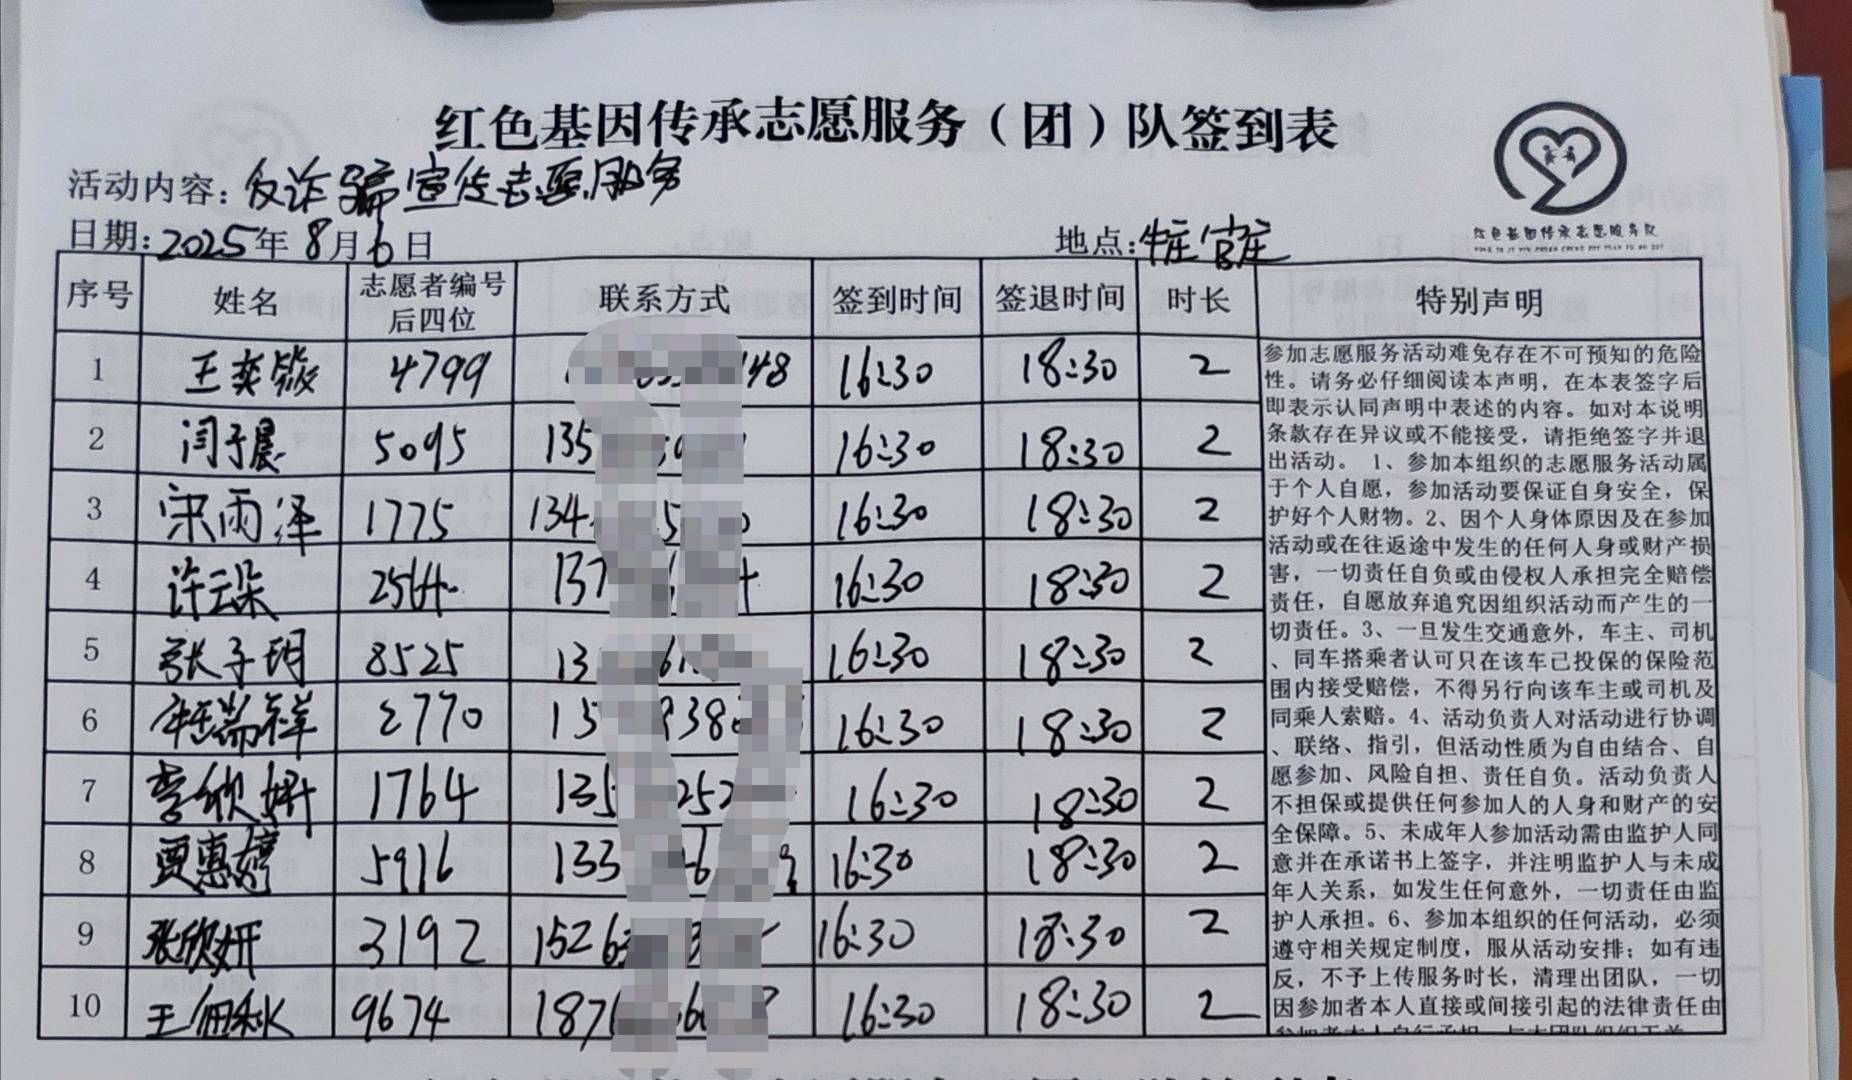 红色基因传承志愿服务（团）队签到表
活动内容：反诈骗宣传志愿服务
日期：2025年8月6日 地点：牛庄官庄
红色基因传承志愿服务队
序号 姓名 志愿者编号后四位 联系方式 签到时间 签退时间 时长 特别声明
1 王奕 4799 148 16:30 18:30 2
2 闫于晨 5095 135 16:30 18:30 2
3 宋雨泽 1775 134 16:30 18:30 2
4 许云朵 2564 137 16:30 18:30 2
5 张子玥 8525 13 16:30 18:30 2
6 瑞祥 2770 15 938 16:30 18:30 2
7 李欣妍 1764 135 252 16:30 18:30 2
8 贾惠婷 5916 133 6 16:30 18:30 2
9 张欣妍 3192 1526 16:30 18:30 2
10 王佃秋 9674 187 16:30 18:30 2
参加志愿服务活动难免存在不可预知的危险
性。请务必仔细阅读本声明，在本表签字后
即表示认同声明中表述的内容。如对本说明
条款存在异议或不能接受，请拒绝签字并退
出活动。 1、参加本组织的志愿服务活动属
于个人自愿，参加活动要保证自身安全，保
护好个人财物。2、因个人身体原因及在参加
活动或在往返途中发生的任何人身或财产损
害，一切责任自负或由侵权人承担完全赔偿
责任，自愿放弃追究因组织活动而产生的一
切责任。3、一旦发生交通意外，车主、司机
、同车搭乘者认可只在该车已投保的保险范
围内接受赔偿，不得另行向该车主或司机及
同乘人索赔。4、活动负责人对活动进行协调
、联络、指引，但活动性质为自由结合、自
愿参加、风险自担、责任自负。活动负责人
不担保或提供任何参加人的人身和财产的安
全保障。5、未成年人参加活动需由监护人同
意并在承诺书上签字，并注明监护人与未成
年人关系，如发生任何意外，一切责任由监
护人承担。6、参加本组织的任何活动，必须
遵守相关规定制度，服从活动安排；如有违
反，不予上传服务时长，清理出团队，一切
因参加者本人直接或间接引起的法律责任由